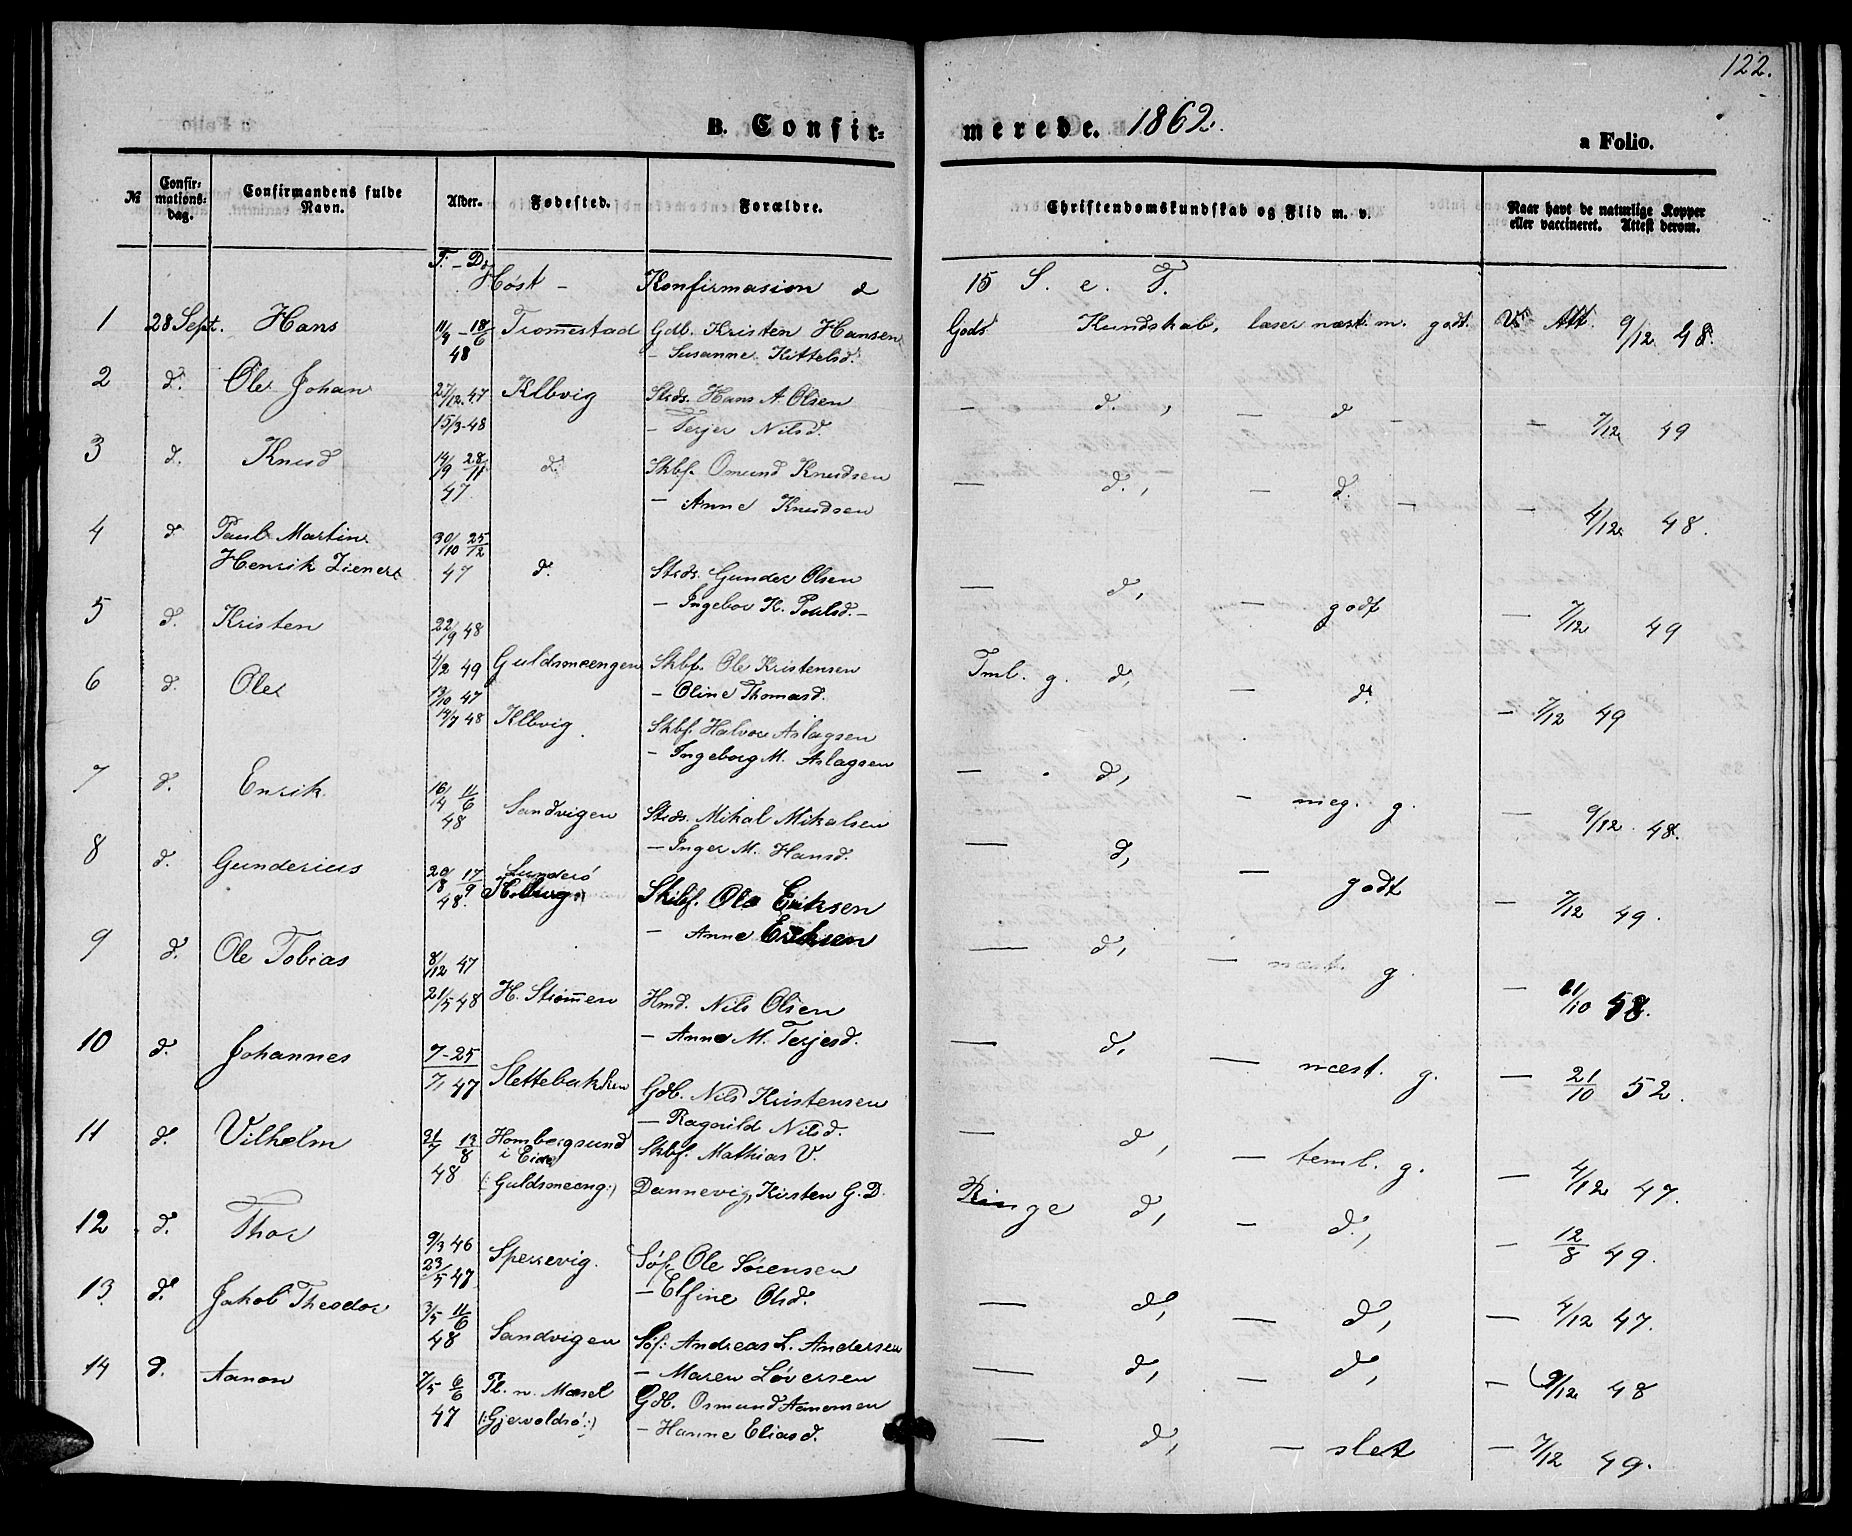 122.
B. Confir-
merede. 1862.
a Folio.
№ Confir-mations-dag. Confirmandens fulde Navn. Alder. Fødested. Forældre. Christendomskundskab og Flid m. v. Naar havt de naturlige Kopper eller vaccineret. Attest derom.
F. - D.
Høst - Konfirmasion d 15 S. e. T.
1 28 Sept. Hans 11/4 - 18/6 48 Tromestad Gdb. Kristen Hansen God Kundskab, læser næst. m. godt. Vn Att. 9/12 48.
- Susanne Kittelsd.
2 d. Ole Johan 27/12 47 Klbvig Strds. Hans A. Olsen - d. , - d - - 7/12 49
15/3-48 - Terjer Nilsd.
3 d. Knud 14/9 28/11 47 d. Skbf. Omund Knudsen - d., - d. - - 4/12 48.
- Anne Knudsen
4 d Paul Martin 30/10 25/12
Henrik Zieners 47 d. Strds. Gunder Olsen - d, - godt - 7/12 49
- Ingebor K. Poulsd.-
5 d. Kristen 22/19 48
4/2 49 Guldsmeengen Skbf. Ole Kristensen Tml. g. d, - d. - 7/12 49
- Oline Thomasd.
6 d. Ole 13/10 47
14/7 48 Klbvig Skbf. Halvor Aslagsen - d, - meg. g. - 9/12 48.
- Ingeborg M. Aslagsen
7 d. Enrik 16/4 11/6 48 Sandvigen Strds. Mikal Mikalsen - d, - godt - 7/12 49.
- Inger M. Hansd.
8 d. Gunderius 20/8 17/9 48. Skibf. Ole Eriksen - d, - næst. g. - 21/10 58.
- Anne Eriksen
9 d. Ole Tobias 8/12 47
21/5 48 H. Strømen Hmd. Nils Olsen - d. - næst. g. - 21/10 52.
- Anne M. Terjesd.
10 d. Johannes 7-25
7/1 47 Slettebakken Gdb. Nils Kristensen - d, - teml. g. - 4/12 47.
- Ragnild Nilsd.
11 d. Vilhelm 21/7 13/8 Hombergsund Skbf. Mathias V.
i Eide
48 (:Guldsmeeng:) Dannevig, Kirsten G. D. Ringe d, - d., - 12/8 49.
12 d. Thor 9/3 46
23/5 47 Sperrevig. Søf. Ole Sørensen - d, - d, - 4/12 47.
- Elfine Olsd.
13. d. Jakob Theodor 3/5 11/6
48 Sandvigen Søf: Andreas L. Andersen - d, - d, - 9/12 48
- Maren Løversen
14 d. Aanon 7/5 6/6 Pl. n. Mæsel Gdb. Osmund Aanonsen - d, - slet - 7/12 49.
47 (:Gjervoldsø:) - Hanne Eliasd.